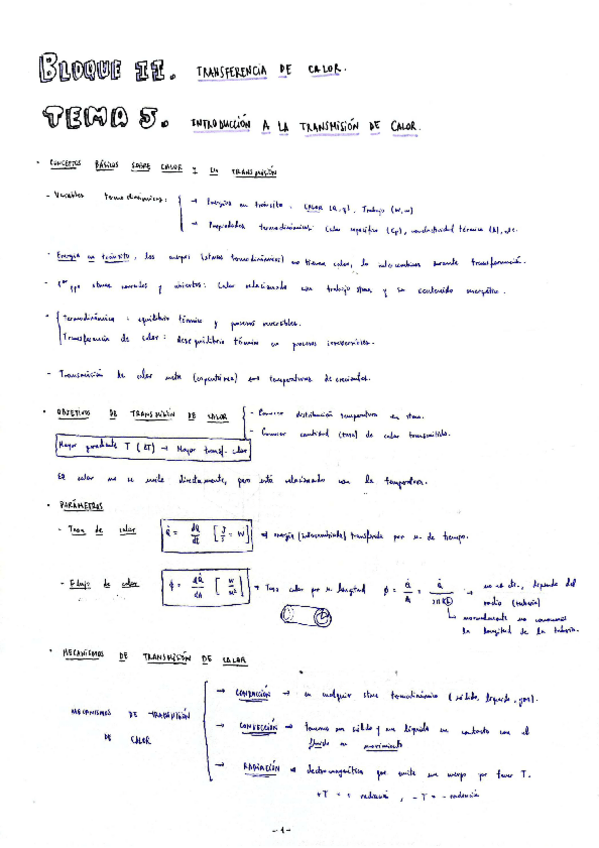 BLOQUE II. TRANSFERENCIA DE CALOR.
TEMA 5. INTRODUCCIÓN A LA TRANSMISIÓN DE CALOR.
• CONCEPTOS BÁSICOS SOBRE CALOR Y LA TRANSMISIÓN
- Variables termodinámicas:
→ Energías en tránsito: CALOR (Q, q), Trabajo (W, w)
→ Propiedades termodinámicas: Calor específico (Cp), conductividad térmica (k), etc.
- Energía en tránsito, los cuerpos (stmas termodinámicos) no tienen calor, lo intercambian durante transformación.
stmas cerrados y abiertos: Calor relacionado con trabajo stma y su contenido energético.
- Termodinámica: equilibrio térmico y procesos reversibles.
Transferencia de calor: desequilibrio térmico en procesos irreversibles.
- Transmisión de calor temperaturas decrecientes.
• OBJETIVOS DE TRANSMISIÓN DE CALOR
- Conocer distribución temperatura en stma.
- Conocer cantidad (tasa) de calor transmitido.
Mayor gradiente T (ΔT) → Mayor transf. calor
El calor no se mide directamente, pero está relacionado con la temperatura.
• PARÁMETROS
- Tasa de calor Q̇ = dQ/dt [J/s = W] → energía (intercambiada) transferida por u. de tiempo.
- Flujo de calor ϕ = dQ̇/dA [W/m²] → Tasa calor por u. longitud ϕ = Q̇/A = Q̇/2πRL → no es cte., depende del
radio (tubería)
normalmente no conocemos
la longitud de la tubería.
• MECANISMOS DE TRANSMISIÓN DE CALOR
MECANISMOS DE TRANSMISIÓN
DE CALOR
→ CONDUCCIÓN → en cualquier stma termodinámico (sólido, líquido, gas).
→ CONVECCIÓN → tenemos un sólido y un líquido en contacto con el
fluido en movimiento
→ RADIACIÓN → electromagnética que emite un cuerpo por tener T.
+T = + radiación, -T = - radiación
-1-